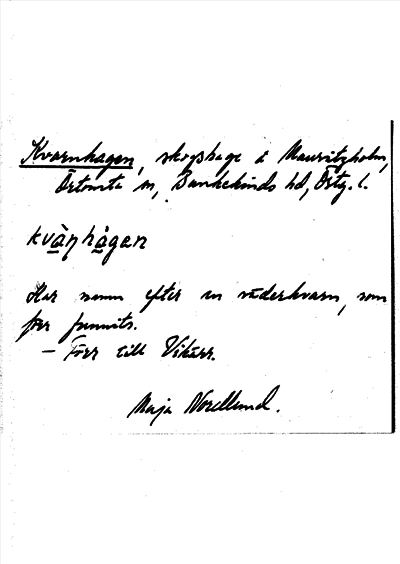 Kvarnhagen, skogshage i Mauritzholm,
Örtomta sn, Bankekinds hd, Östg. l.
kvàṇhàgen
Har namn efter en väderkvarn, som
förr funnits.
— Förr till Vikärr.
Maja Norellund.